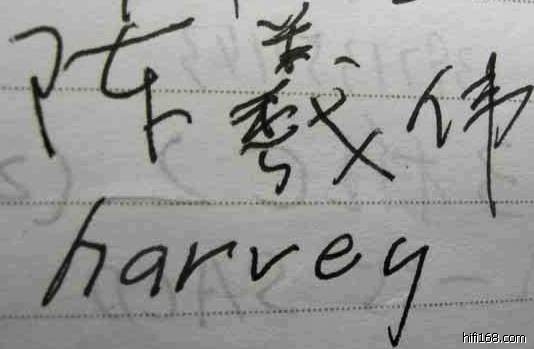 陈羲伟
harvey
hifi168.com